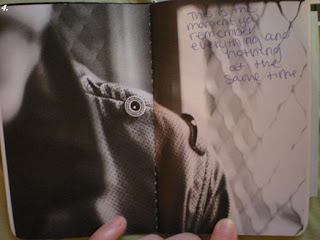 4.
This is the
moment you
remember
everything and
nothing
at the
same time.